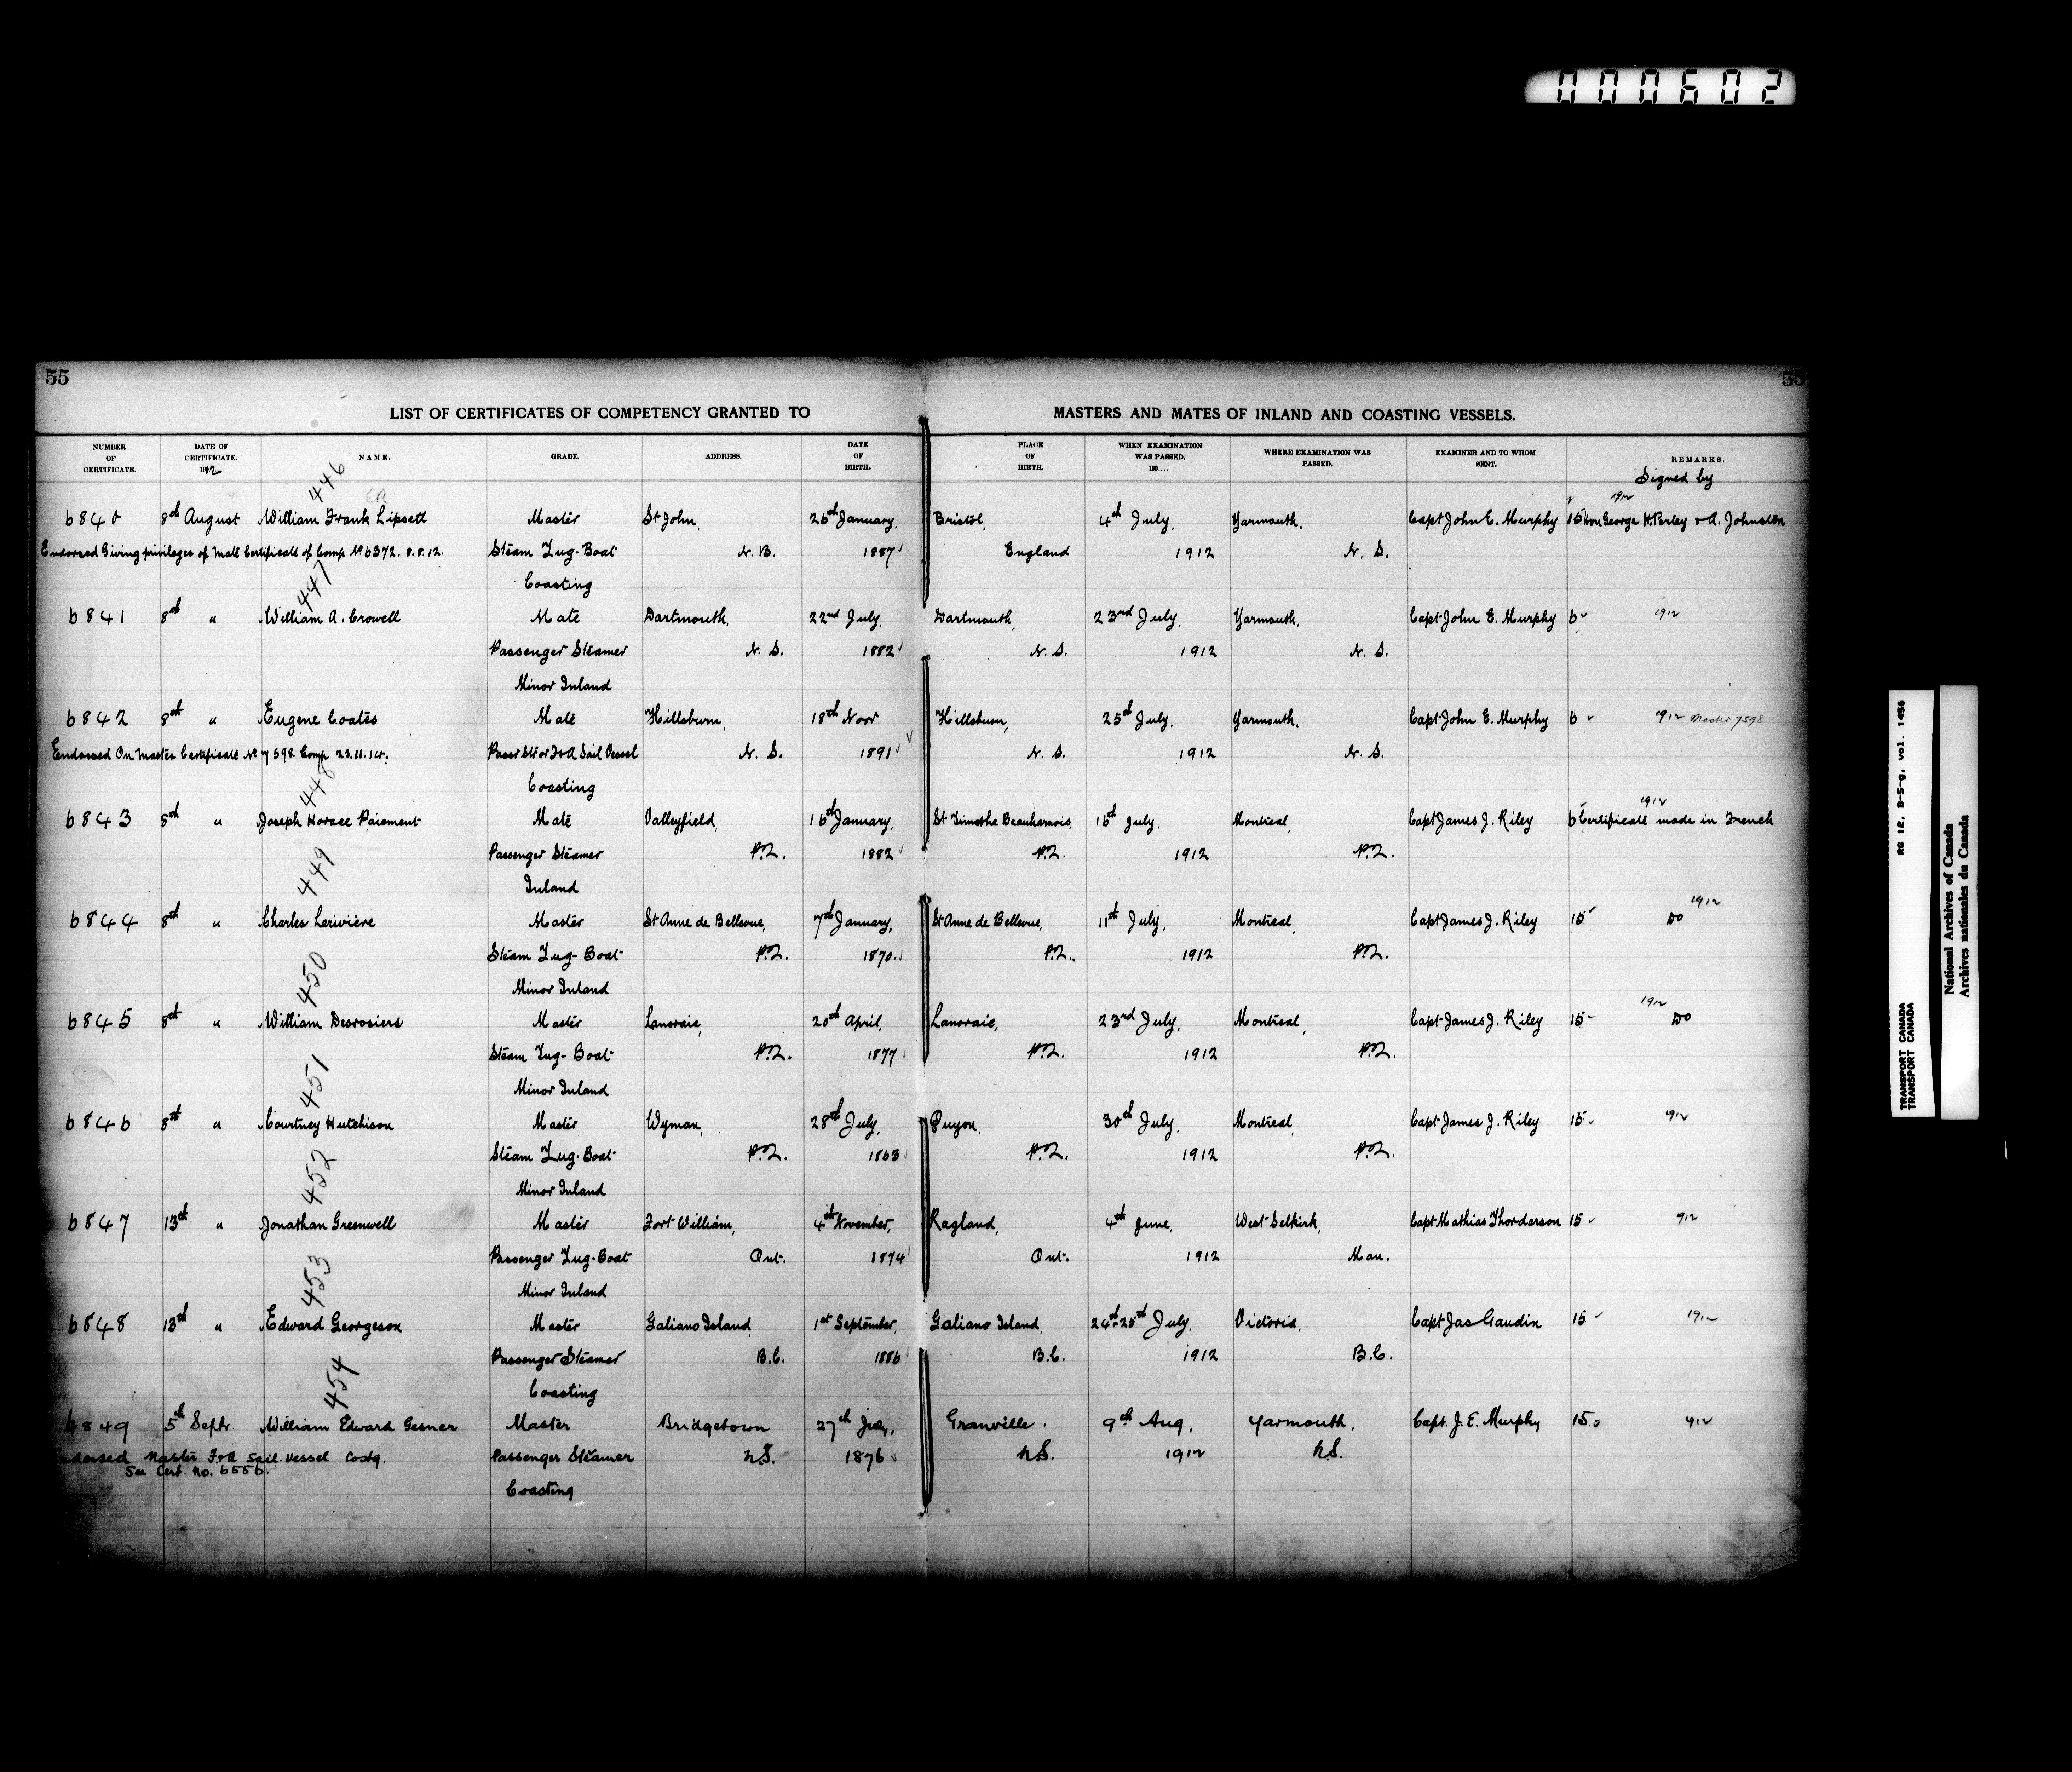 000602
55 55
LIST OF CERTIFICATES OF COMPETENCY GRANTED TO MASTERS AND MATES OF INLAND AND COASTING VESSELS.
NUMBER OF CERTIFICATE. DATE OF CERTIFICATE. 1912 NAME. GRADE. ADDRESS. DATE OF BIRTH. PLACE OF BIRTH. WHEN EXAMINATION WAS PASSED. 190.... WHERE EXAMINATION WAS PASSED. EXAMINER AND TO WHOM SENT. REMARKS.
Signed by
446 1912
6840 8th August William Frank Lipsett Master St John, 26th January, Bristol, 4th July, Yarmouth, Capt John E. Murphy 15 Hon George H. Perley & A. Johnston
Endorsed Giving privileges of Mate Certificate of Comp. No 6372. 8.8.12. Steam Tug-Boat N. B. 1887 England 1912 N. S.
Coasting
447
6841 8th " William A. Crowell Mate Dartmouth, 22nd July, Dartmouth, 23rd July, Yarmouth, Capt John E. Murphy 6 1912
Passenger Steamer N. S. 1882 N. S. 1912 N. S.
Minor Inland
6842 8th " Eugene Coates Mate Hillsburn, 18th Novr Hillsburn, 25th July, Yarmouth, Capt John E. Murphy 6 1912 Master 7598
Endorsed On Master Certificate No 7598. Comp 23.11.14. Passr Str or F&A Sail Vessel N. S. 1891 N. S. 1912 N. S.
Coasting
448 1912
6843 8th " Joseph Horace Paiement Mate Valleyfield, 16th January, St Timothe Beauharnois, 16th July, Montreal, Capt James J. Riley 6 Certificate made in French
Passenger Steamer P.Q. 1882 P.Q. 1912 P.Q.
Inland
449 1912
6844 8th " Charles Lariviere Master St Anne de Bellevue, 7th January, St Anne de Bellevue, 11th July, Montreal, Capt James J. Riley 15 Do
Steam Tug-Boat P.Q. 1870 P.Q. 1912 P.Q.
Minor Inland
450 1912
6845 8th " William Desrosiers Master Lanoraie, 20th April, Lanoraie, 23rd July, Montreal, Capt James J. Riley 15 Do
Steam Tug-Boat P.Q. 1877 P.Q. 1912 P.Q.
Minor Inland
451
6846 8th " Courtney Hutchison Master Wyman, 28th July, Quyon, 30th July, Montreal, Capt James J. Riley 15 1912
Steam Tug-Boat P.Q. 1863 P.Q. 1912 P.Q.
Minor Inland
452
6847 13th " Jonathan Greenwell Master Fort William, 4th November, Ragland, 4th June, West Selkirk, Capt Mathias Thordarson 15 912
Passenger Tug-Boat Ont. 1874 Ont. 1912 Man.
Minor Inland
453
6848 13th " Edward Georgeson Master Galiano Island, 1st September, Galiano Island, 24th-25th July, Victoria, Capt Jas Gaudin 15 191
Passenger Steamer B.C. 1886 B.C. 1912 B.C.
Coasting
454
6849 5th Septr William Edward Gesner Master Bridgetown 27th Granville. 9th Aug, Yarmouth, Capt. J. E. Murphy 15 912
Master F&A Sail Vessel Costg. Passenger Steamer N.S. 1876 N.S. 1912 N.S.
See Cert. No. 6556. Coasting
RG 12, B-5-g, vol. 1456
TRANSPORT CANADA
TRANSPORT CANADA
National Archives of Canada
Archives nationales du Canada